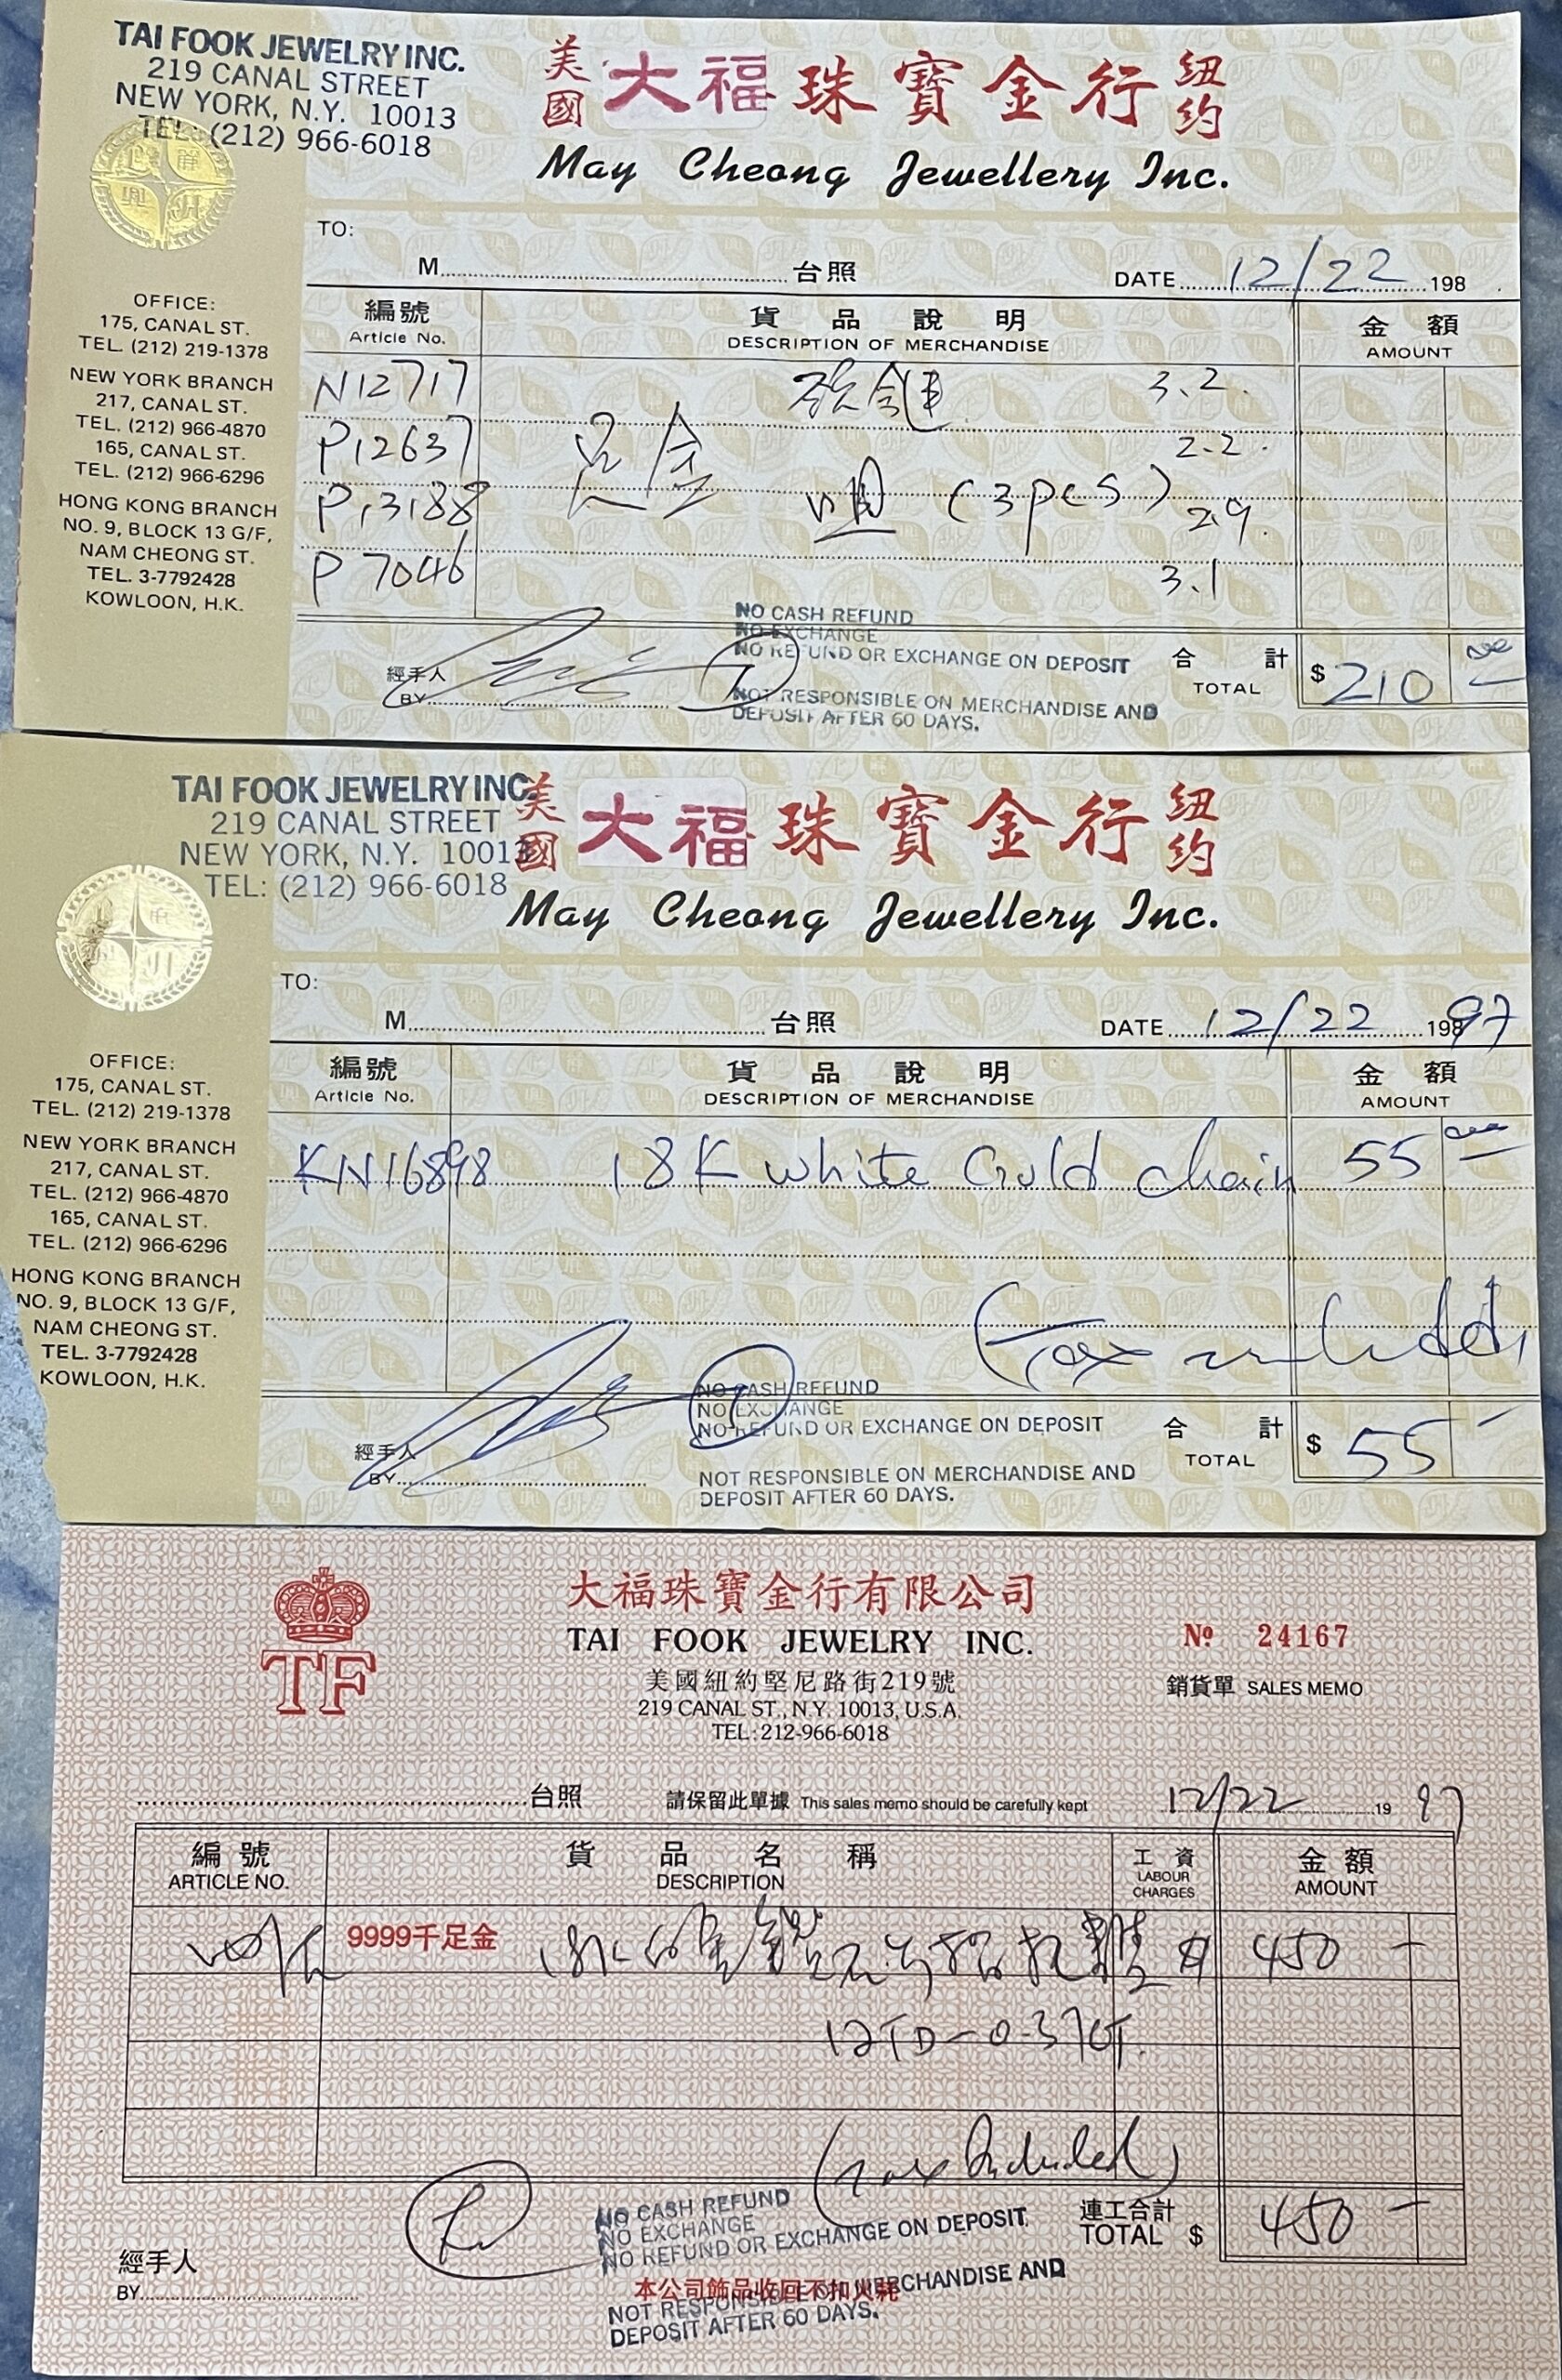 TAI FOOK JEWELRY INC.
219 CANAL STREET
NEW YORK, N.Y. 10013
TEL: (212) 966-6018
美國 大福珠寶金行 纽约
May Cheong Jewellery Inc.
TO:
M 台照
DATE 12/22 198
OFFICE:
175, CANAL ST.
TEL. (212) 219-1378
NEW YORK BRANCH
217, CANAL ST.
TEL. (212) 966-4870
165, CANAL ST.
TEL. (212) 966-6296
HONG KONG BRANCH
NO. 9, BLOCK 13 G/F,
NAM CHEONG ST.
TEL. 3-7792428
KOWLOON, H.K.
編號 貨品說明 金額
Article No. DESCRIPTION OF MERCHANDISE AMOUNT
N12717 3.2
P12637 足金 2.2
P13188 (3pcs) 2.9
P7046 3.1
NO CASH REFUND
NO EXCHANGE
NO REFUND OR EXCHANGE ON DEPOSIT
NOT RESPONSIBLE ON MERCHANDISE AND
DEPOSIT AFTER 60 DAYS.
經手人
BY
合計
TOTAL $210 00
TAI FOOK JEWELRY INC.
219 CANAL STREET
NEW YORK, N.Y. 10013
TEL: (212) 966-6018
美國 大福珠寶金行 纽约
May Cheong Jewellery Inc.
TO:
M 台照
DATE 12/22 198 97
OFFICE:
175, CANAL ST.
TEL. (212) 219-1378
NEW YORK BRANCH
217, CANAL ST.
TEL. (212) 966-4870
165, CANAL ST.
TEL. (212) 966-6296
HONG KONG BRANCH
NO. 9, BLOCK 13 G/F,
NAM CHEONG ST.
TEL. 3-7792428
KOWLOON, H.K.
編號 貨品說明 金額
Article No. DESCRIPTION OF MERCHANDISE AMOUNT
KN16898 18K white Gold chain 55 00
(Tax included)
NO CASH REFUND
NO EXCHANGE
NO REFUND OR EXCHANGE ON DEPOSIT
NOT RESPONSIBLE ON MERCHANDISE AND
DEPOSIT AFTER 60 DAYS.
經手人
BY
合計
TOTAL $ 55 -
TF
大福珠寶金行有限公司
TAI FOOK JEWELRY INC.
美國紐約堅尼路街219號
219 CANAL ST., N.Y. 10013, U.S.A.
TEL:212-966-6018
Nº 24167
銷貨單 SALES MEMO
台照
請保留此單據 This sales memo should be carefully kept
12/22 19 97
編號 貨品名稱 工資 金額
ARTICLE NO. DESCRIPTION LABOUR CHARGES AMOUNT
9999千足金 18K 450 -
12TD-0.37CT.
(tax Included)
NO CASH REFUND
NO EXCHANGE
NO REFUND OR EXCHANGE ON DEPOSIT
NOT RESPONSIBLE ON MERCHANDISE AND
DEPOSIT AFTER 60 DAYS.
本公司飾品收回不扣火耗
連工合計
TOTAL $ 450 -
經手人
BY